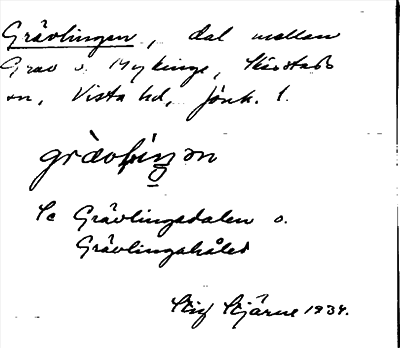 Grävlingen, dal mellan
Grav o. Mykinge, Skärstads
sn, Vista hd, Jönk. l.
gràvlìŋən
Se Grävlingsdalen o.
Grävlingahålet
Stig Stjärne 1934.